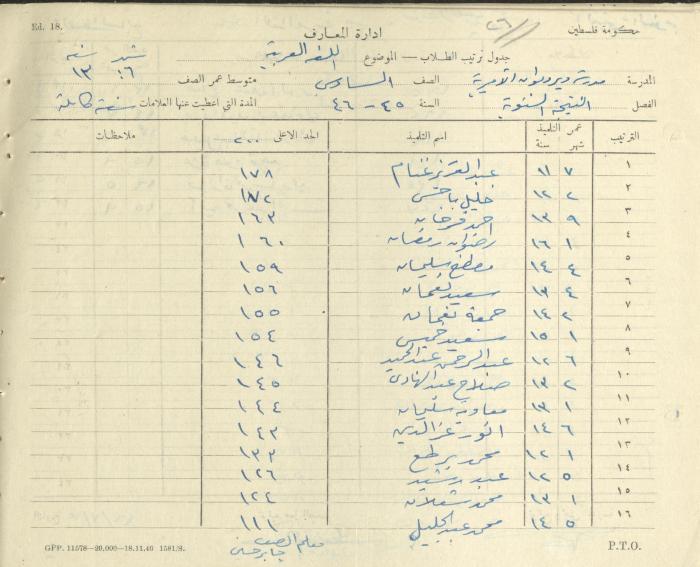 Ed. 18.
ادارة المعارف
٢٦
حكومة فلسطين
جدول ترتيب الطلاب — الموضوع اللغة العربية
شهر سنة
المدرسة مدرسة دير ديوان الاميرية الصف السادس متوسط عمر الصف ٦ ١٣
الفصل النتيجة السنوية السنة ٤٥ - ٤٦ المدة التي اعطيت عنها العلامات سنة كاملة
الترتيب عمر التلميذ شهر سنة اسم التلميذ الحد الاعلى ٢٠٠ ملاحظات
١ ٧ ١١ عبد العزيز غنام ١٧٨
٢ ٢ ١٢ خليل ١٧٢
٣ ٩ ١٣ احمد فرحان ١٦٣
٤ ١ ١٦ رضوان رمضان ١٦٠
٥ ٤ ١٤ مصطفى سليمان ١٥٩
٦ ٤ ١٣ سعيد نعمان ١٥٦
٧ ٢ ١٤ جمعة نعمان ١٥٥
٨ ١ ١٥ سعيد خميس ١٥٤
٩ ٦ ١٢ عبد الرحمن عبد الحميد ١٤٦
١٠ ٢ ١٣ صلاح عبد الهادي ١٤٥
١١ ١ ١٣ معاوية سليمان ١٤٤
١٢ ٦ ١٤ انور عز الدين ١٤٣
١٣ ١ ١٢ محمد ١٣٣
١٤ ٥ ١٢ عبد رشيد ١٢٦
١٥ ١ ١٣ محمد شعلان ١٢٤
١٦ ٥ ١٤ محمد عبد الجليل ١١١
معلم الصف
جابر حسن
GPP. 11578—20,000—18.11.40 1581/S.
P.T.O.